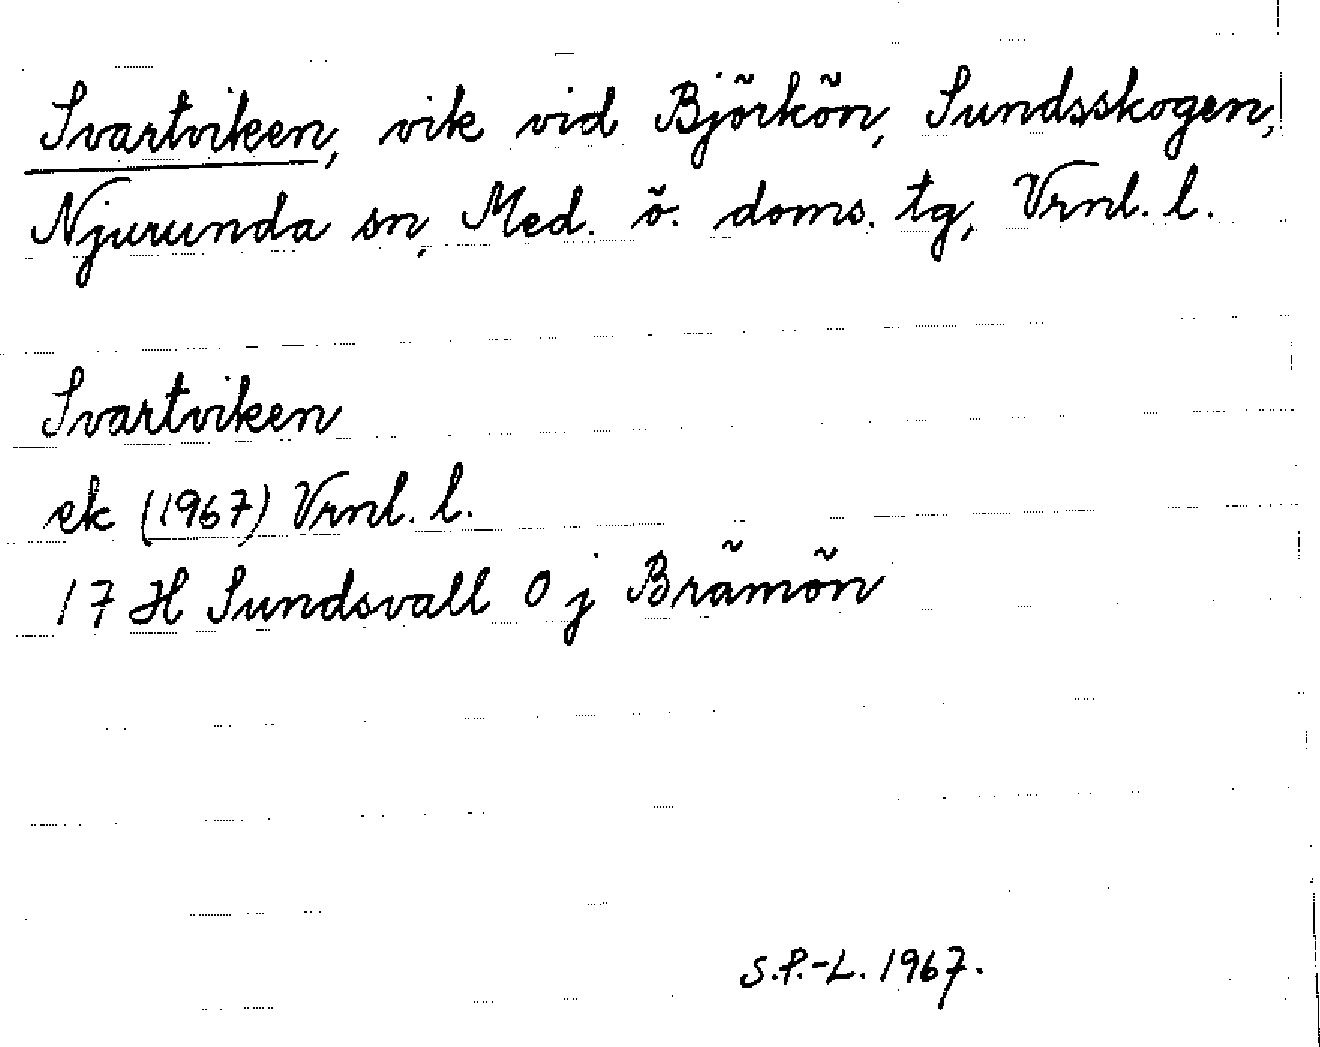 Svartviken, vik vid Björkön, Sundsskogen,
Njurunda sn, Med. ö. doms. tg, Vrnl. l.
Svartviken
ek (1967) Vrnl. l.
17 H Sundsvall 0 j Brämön
S.P.-L. 1967.